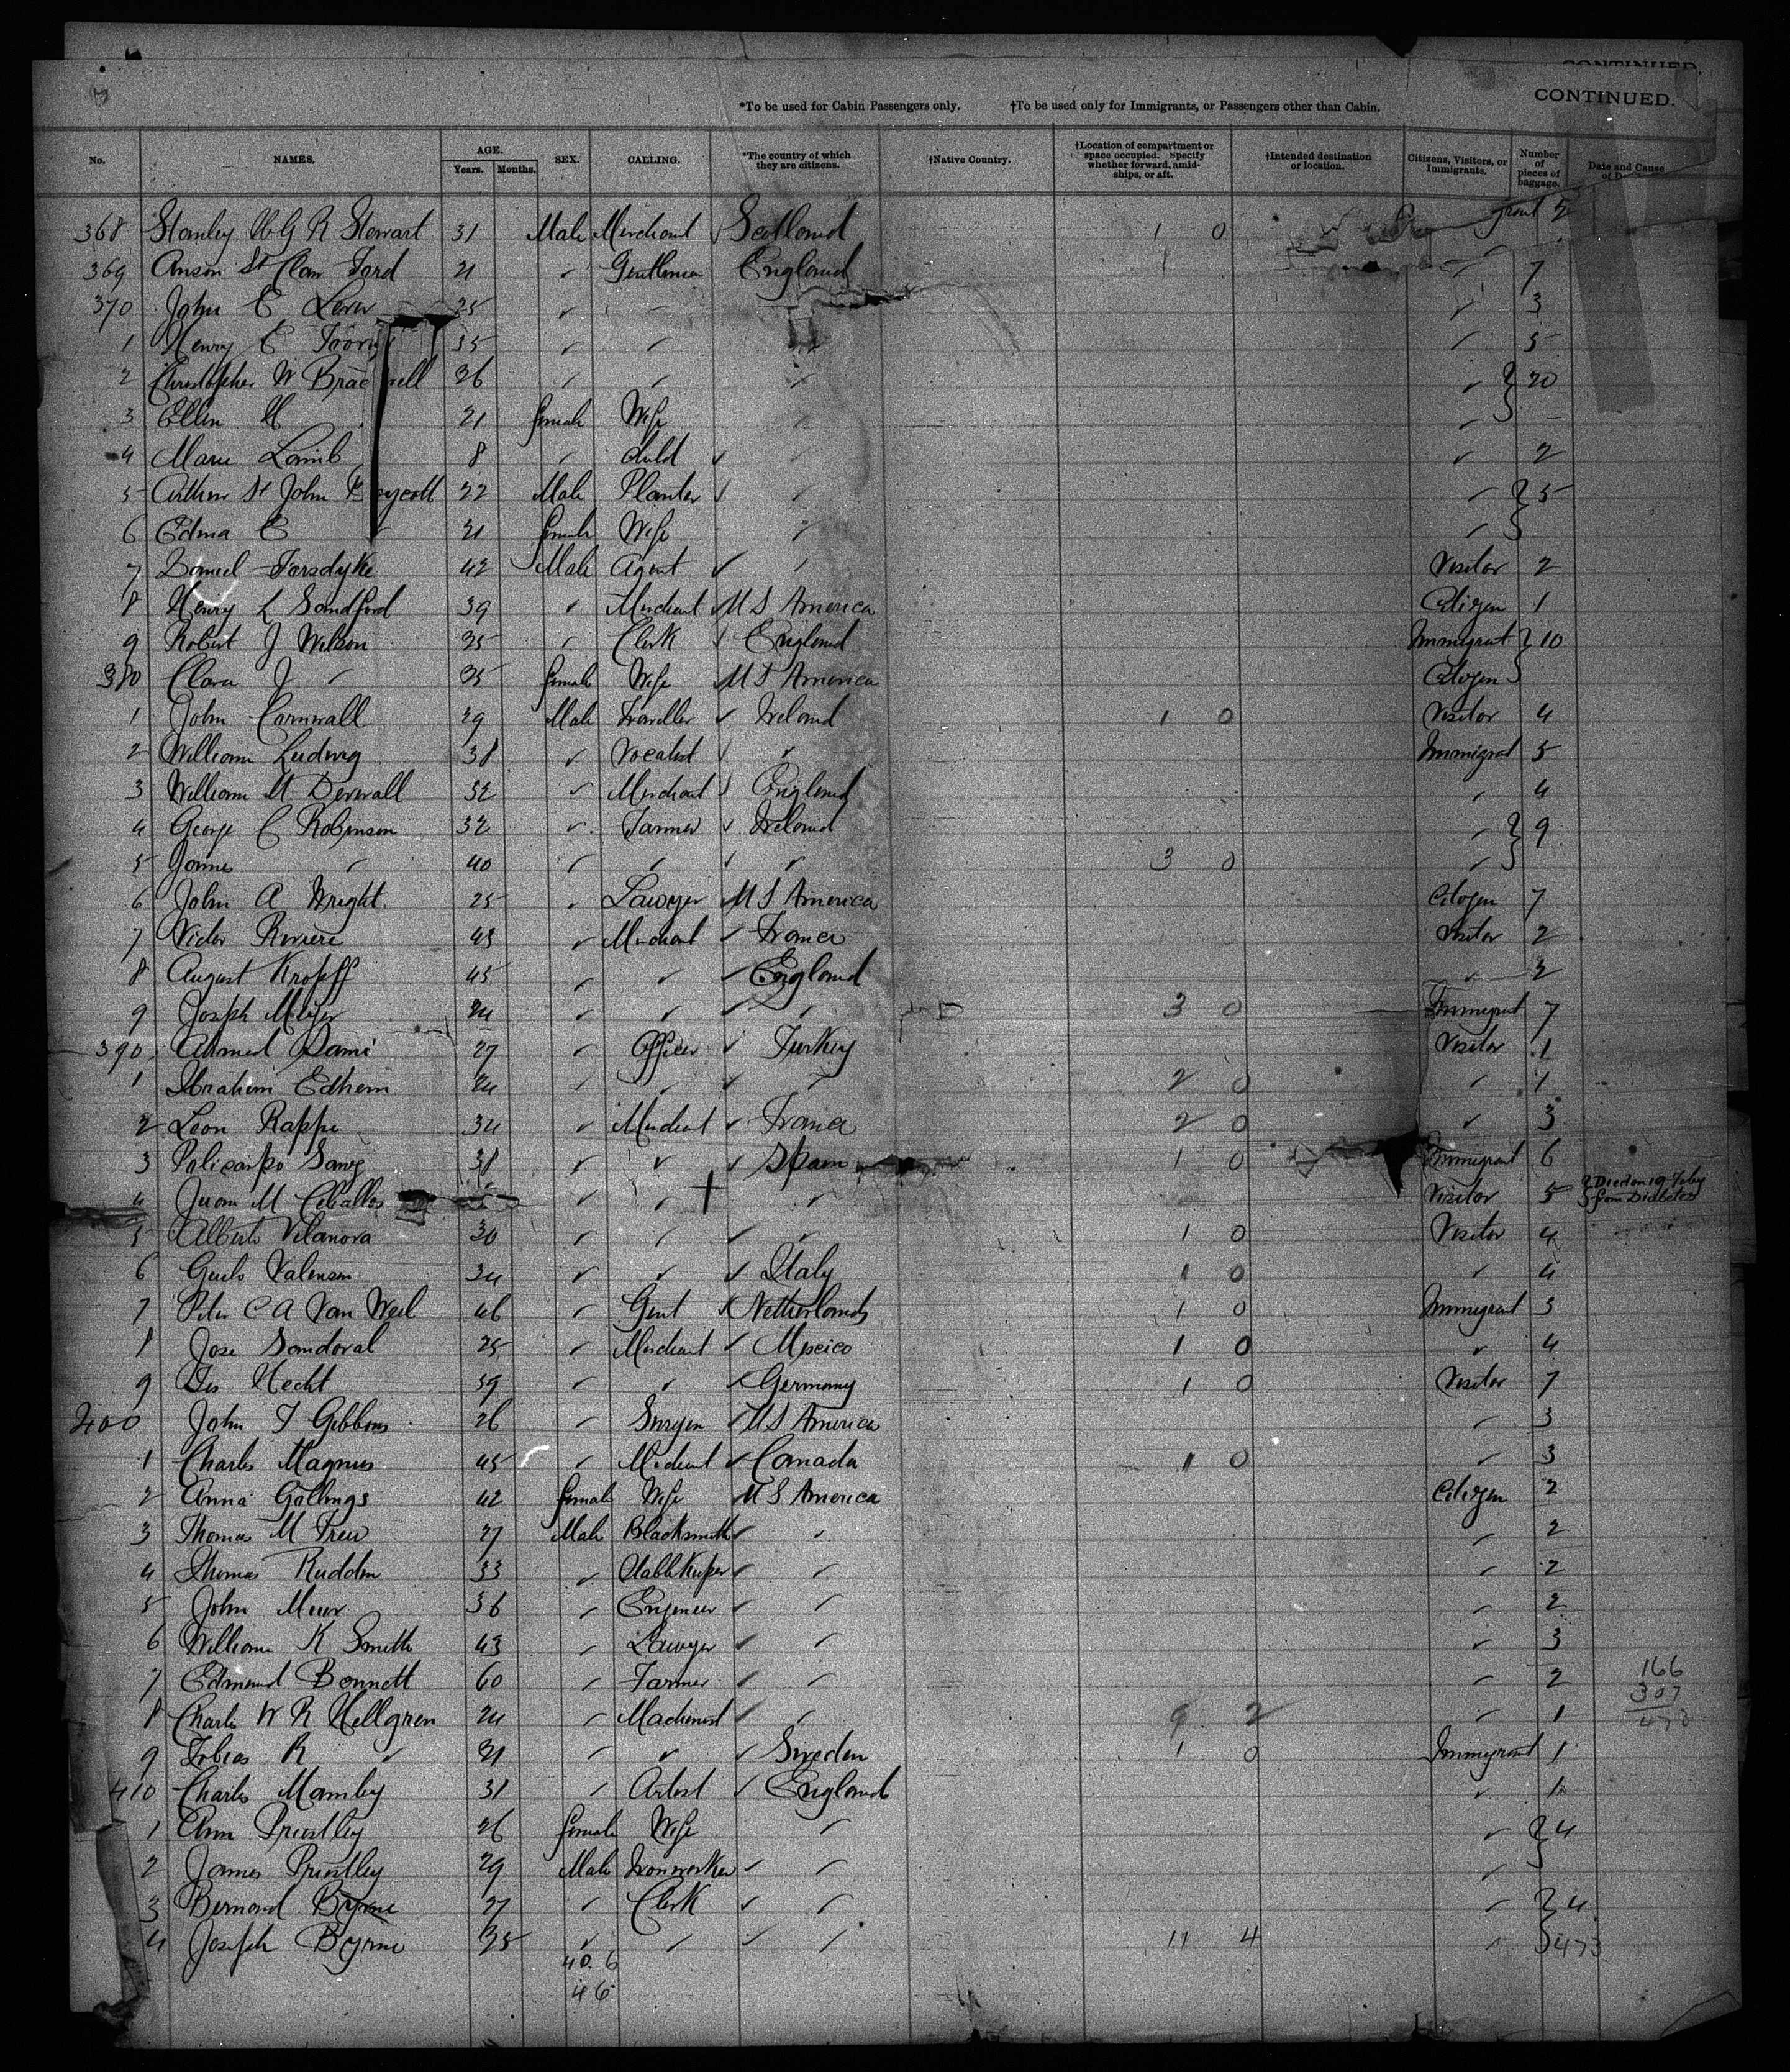 CONTINUED.
CONTINUED.
*To be used for Cabin Passengers only. †To be used only for Immigrants, or Passengers other than Cabin.
No. NAMES. AGE. Years. Months. SEX. CALLING. *The country of which they are citizens. †Native Country. †Location of compartment or space occupied. Specify whether forward, amidships, or aft. †Intended destination or location. Citizens, Visitors, or Immigrants. Number of pieces of baggage. Date and Cause of
368 Stanley R Stewart 31 Male Merchant ✓ Scotland 1 0 grant 2
369 Anson St Clair Ford 21 ✓ Gentleman England 1 ✓ 7
370 John E 25 ✓ ✓ 3
1 Henry E 35 ✓ ✓ ✓ ✓ 5
2 Christopher W 26 ✓ ✓ ✓ ✓ } 20
3 Ellen H 21 female Wife ✓ ✓
4 Marie Lamb 8 ✓ Child ✓ ✓ ✓ 2
5 Arthur St John 22 Male Planter ✓ ✓ ✓ } 5
6 Edma E ✓ 21 female Wife ✓ ✓
7 Daniel Forsdyke 42 Male Agent ✓ ✓ Visitor 2
8 Henry L Sandford 39 ✓ Merchant ✓ U S America Citizen 1
9 Robert J Wilson 25 ✓ Clerk ✓ England Immigrant } 10
380 Clara J ✓ 25 female Wife ✓ U S America Citizen
1 John Cornwall 29 Male Traveller ✓ Ireland 1 0 Visitor 4
2 William Ludwig 38 ✓ Vocalist ✓ ✓ Immigrant 5
3 William H Derwall 32 ✓ Merchant ✓ England ✓ 4
4 George C Robinson 32 ✓ Farmer ✓ Ireland ✓ } 9
5 James ✓ 40 ✓ ✓ ✓ ✓ 3 0 ✓
6 John A Wright 25 ✓ Lawyer ✓ U S America Citizen 7
7 Victor Riviere 43 ✓ Merchant ✓ France Visitor 2
8 August Kropff 45 ✓ ✓ ✓ England ✓ 2
9 Joseph Meyer 24 ✓ ✓ ✓ ✓ 3 0 Immigrant 7
390 Ahmed Sami 27 ✓ Officer ✓ Turkey Visitor 1
1 Ibrahim Edhem 24 ✓ ✓ ✓ ✓ 2 0 ✓ 1
2 Leon Rappe 34 ✓ Merchant ✓ France 2 0 ✓ 3
3 Policarpo Sanz 38 ✓ ✓ ✓ Spain 1 0 Immigrant 6
4 Juan M Ceballos ✓ ✓ ✓ Visitor 5 } Died on 19 Feby from
5 Alberto Vilanova 30 ✓ ✓ ✓ ✓ 1 0 Visitor 4
6 Valenson 34 ✓ ✓ ✓ Italy 1 0 ✓ 4
7 Peter C A Van Weel 46 ✓ Gent ✓ Netherlands 1 0 Immigrant 3
8 Jose Sandoval 25 ✓ Merchant ✓ Mexico 1 0 ✓ 4
9 Hecht 39 ✓ ✓ ✓ Germany 1 0 Visitor 7
400 John F Gibbons 26 ✓ Surgeon ✓ U S America ✓ 3
1 Charles Magnus 45 ✓ Merchant ✓ Canada 1 0 ✓ 3
2 Anna Gollings 42 female Wife ✓ U S America Citizen 2
3 Thomas M Frew 27 Male Blacksmith ✓ ✓ ✓ 2
4 Thomas Rudden 33 ✓ Stable Keeper ✓ ✓ ✓ 2
5 John Muir 36 ✓ Engineer ✓ ✓ ✓ 2
6 William K Smith 43 ✓ Lawyer ✓ ✓ ✓ 3
7 Edmund Bennett 60 ✓ Farmer ✓ ✓ ✓ 2 166
8 Charles W R Hellgren 24 ✓ Machinist ✓ ✓ 9 2 ✓ 1 307
473
9 Tobias R ✓ 21 ✓ ✓ ✓ Sweden 1 0 Immigrant 1
410 Charles Manley 31 ✓ Artist ✓ England ✓ 1
1 Ann Priestley 26 female Wife ✓ ✓ } 4
2 James Priestley 29 Male Ironworker ✓ ✓ ✓
3 Bernard Byrne 27 ✓ Clerk ✓ ✓ ✓ } 4
4 Joseph Byrne 25 ✓ ✓ ✓ ✓ 11 4 ✓ 473
40 6
46